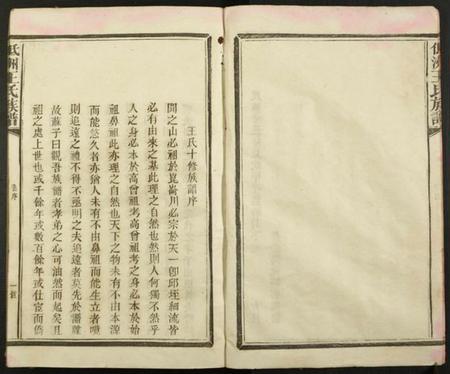 王氏十修族譜序
聞之山必祖於崑崙川必宗於天一卽邱垤細流皆
必有由來之基此理之自然也然則人何獨不然乎
人之身必本於高曾祖考高曾祖考之身必本於始
祖鼻祖此亦理之自然也天下之物未有不由本源
而能悠久者亦猶人未有不由鼻祖而能生立者噫
則追遠之禮不得不亟明之夫追遠者莫先於譜牒
故蘇子曰觀吾族譜者孝弟之心可油然而起矣且
祖之處上世也或千餘年或數百餘年或仕宦而僑
王氏族譜
卷序
一
洲王氏族譜